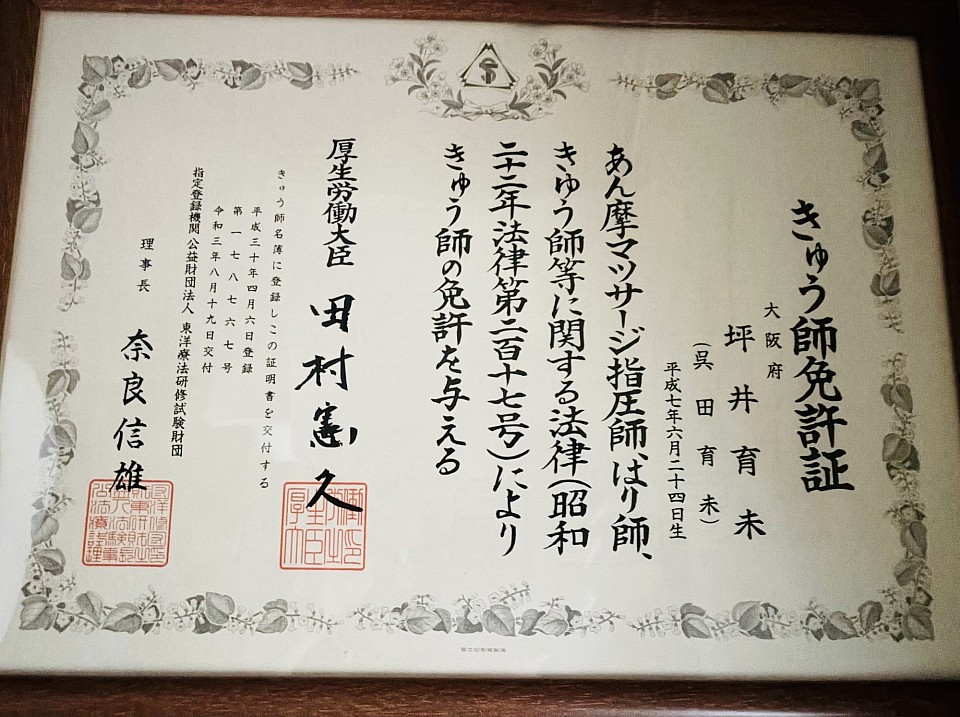 きゅう師免許証
大阪府
坪井育未
(呉田育未)
平成七年六月二十四日生
あん摩マツサージ指圧師、はり師、
きゆう師等に関する法律(昭和
二十二年法律第二百十七号)により
きゅう師の免許を与える
厚生労働大臣 田村憲久
きゅう師名簿に登録しこの証明書を交付する
平成三十年四月六日登録
第一七八七六七号
令和三年八月十九日交付
指定登録機関 公益財団法人 東洋療法研修試験財団
理事長 奈良信雄